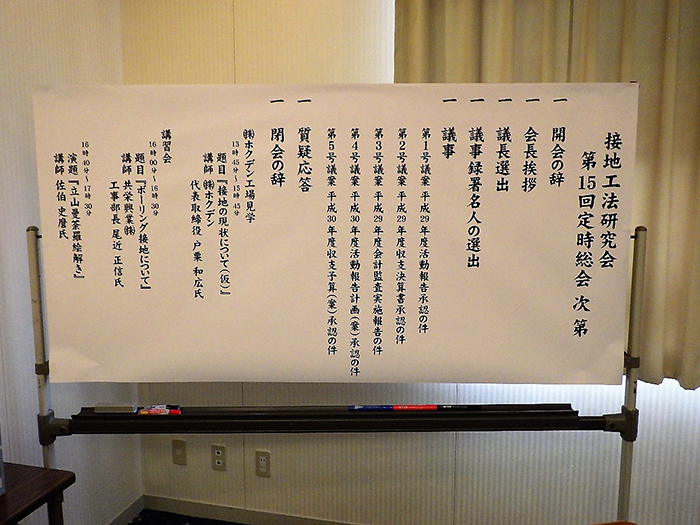 接地工法研究会
第15回定時総会 次 第
一 開会の辞
一 会長挨拶
一 議長選出
一 議事録署名人の選出
一 議事
第1号議案 平成29年度活動報告承認の件
第2号議案 平成29年度収支決算書承認の件
第3号議案 平成29年度会計監査実施報告の件
第4号議案 平成30年度活動報告計画(案)承認の件
第5号議案 平成30年度収支予算(案)承認の件
一 質疑応答
一 閉会の辞
㈱ホクデン工場見学
13時45分~15時45分
題目『接地の現状について(仮)』
講師 ㈱ホクデン
代表取締役 戸栗 和広氏
講習会
16時00分~16時30分
題目『ボーリング接地について』
講師 共栄興業㈱
工事部長 尾近 正信氏
16時40分~17時30分
演題『立山曼荼羅絵解き』
講師 佐伯 史麿氏